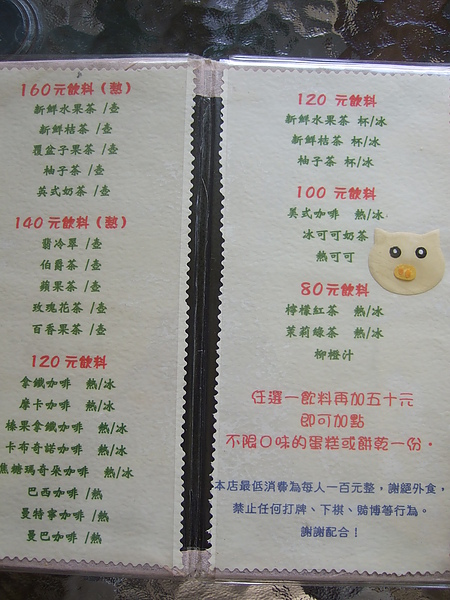 160元飲料（憨）
新鮮水果茶 /壺
新鮮桔茶 /壺
覆盆子果茶 /壺
柚子茶 /壺
英式奶茶 /壺
140元飲料（憨）
翡冷翠 /壺
伯爵茶 /壺
蘋果茶 /壺
玫瑰花茶 /壺
百香果茶 /壺
120元飲料
拿鐵咖啡 熱/冰
摩卡咖啡 熱/冰
榛果拿鐵咖啡 熱/冰
卡布奇諾咖啡 熱/冰
焦糖瑪奇朵咖啡 熱/冰
巴西咖啡 /熱
曼特寧咖啡 /熱
曼巴咖啡 /熱
120 元飲料
新鮮水果茶 杯/冰
新鮮桔茶 杯/冰
柚子茶 杯/冰
100 元飲料
美式咖啡 熱/冰
冰可可奶茶
熱可可
80元飲料
檸檬紅茶 熱/冰
茉莉綠茶 熱/冰
柳橙汁
任選一飲料再加五十元
即可加點
不限口味的蛋糕或餅乾一份。
本店最低消費為每人一百元整，謝絕外食，
禁止任何打牌、下棋、賭博等行為。
謝謝配合！